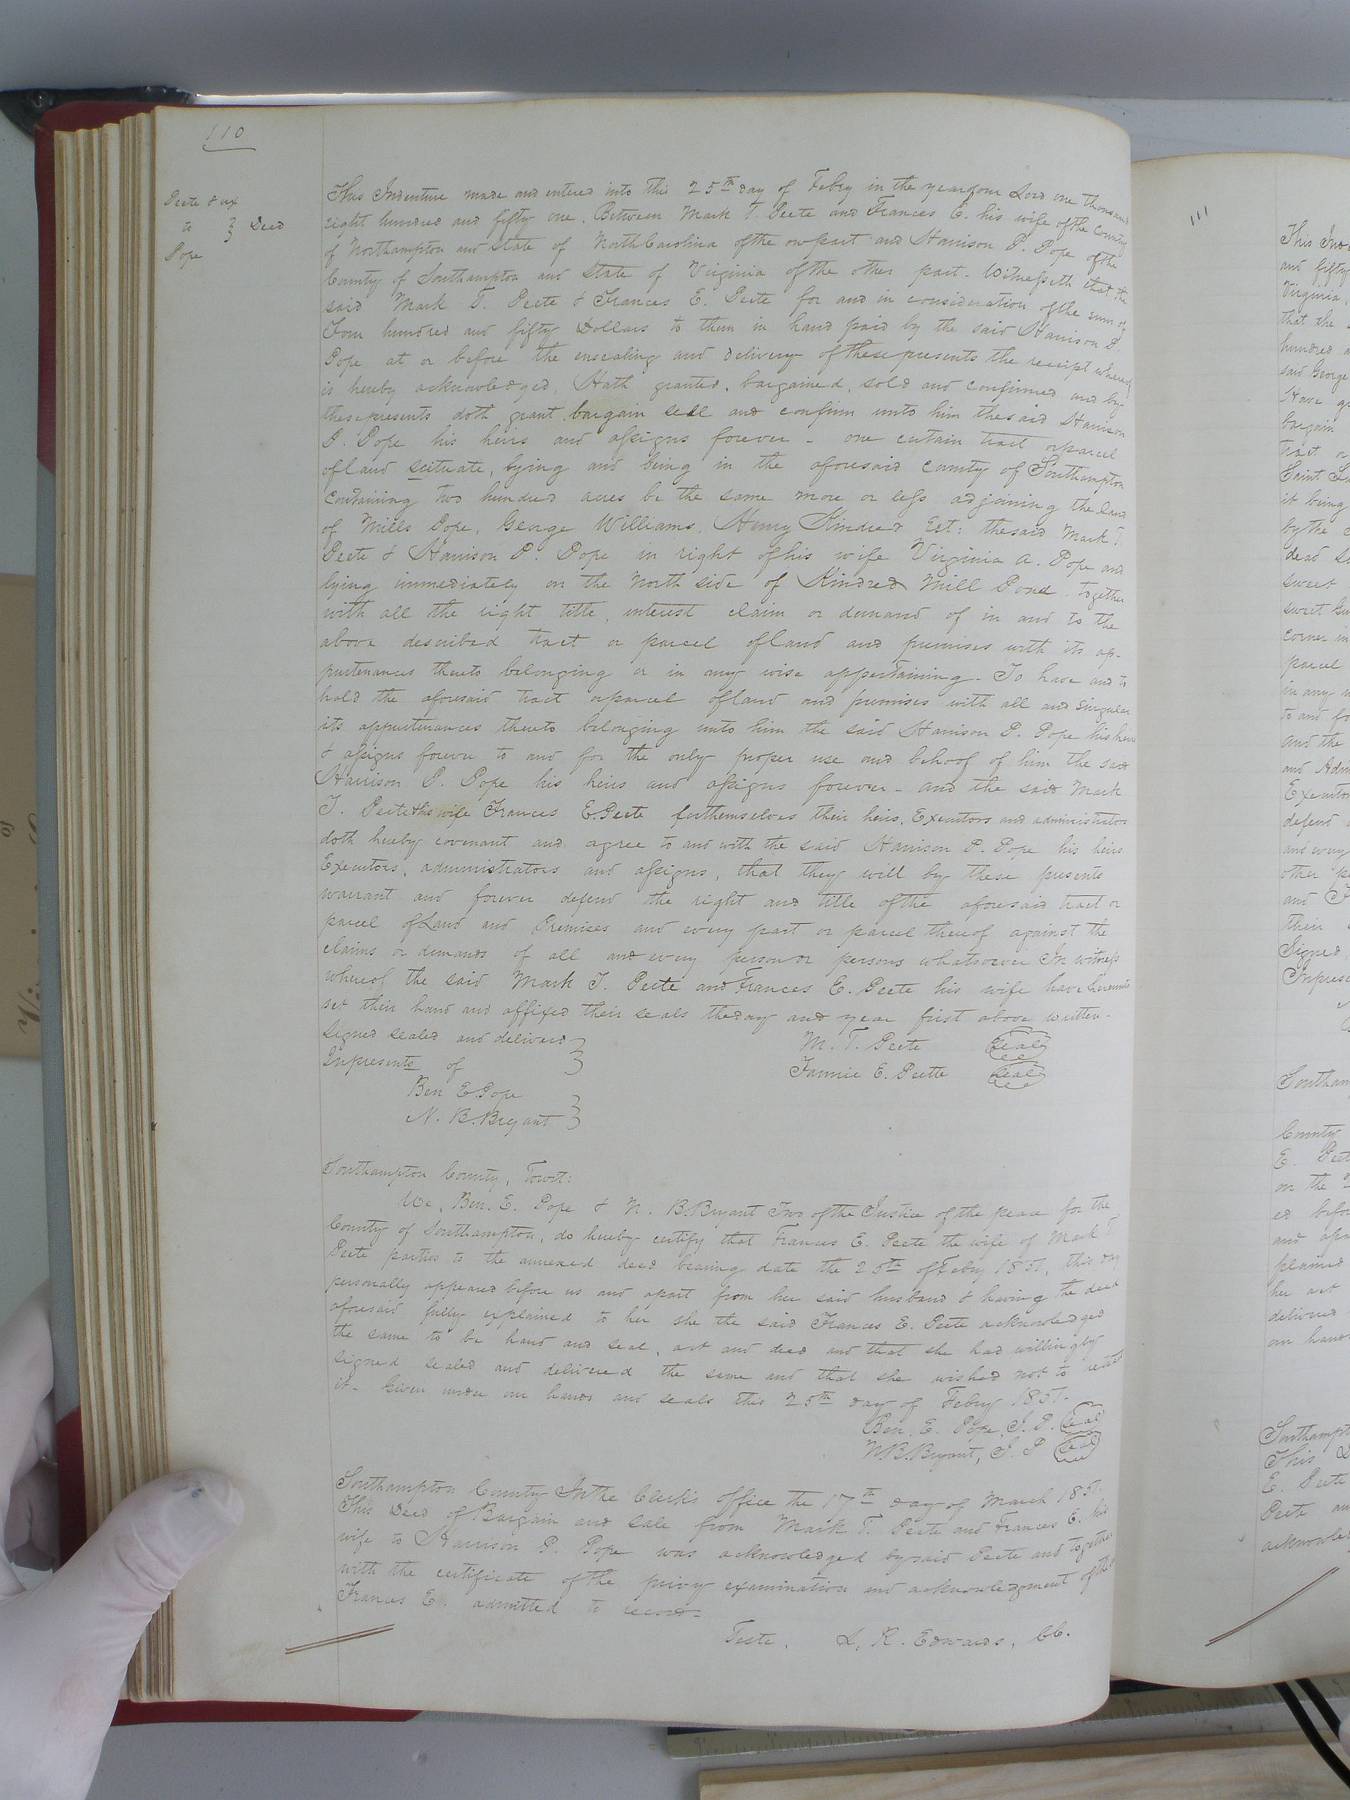 110
Peete & ux
to } Deed
Pope
This Indenture made and entered into this 25th day of Feby in the year of our Lord one thousand
eight hundred and fifty one, Between Mark T. Peete and Frances E. his wife of the County
of Northampton and State of North Carolina of the one part and Harrison P. Pope of the
County of Southampton and State of Virginia of the other part. Witnesseth that the
said Mark T. Peete & Frances E. Peete for and in consideration of the sum of
Four hundred and fifty Dollars to them in hand paid by the said Harrison P.
Pope at or before the ensealing and delivery of these presents the receipt whereof
is hereby acknowledged, Hath granted, bargained, sold and confirmed and by
these presents doth grant bargain sell and confirm unto him the said Harrison
P. Pope his heirs and assigns forever - one certain tract or parcel
of land scituate, lying and being in the aforesaid county of Southampton
containing two hundred acres be the same more or less adjoining the land
of Mills Pope, George Williams, Henry Kindred Est: the said Mark T.
Peete & Harrison P. Pope in right of his wife Virginia A. Pope and
lying immediately on the North side of Kindred Mill Pond, together
with all the right title, interest claim or demand of in and to the
above described tract or parcel of land and premises with its ap-
purtenances thereto belonging or in any wise appertaining. To have and to
hold the aforesaid tract or parcel of land and premises with all and singular
its appurtenances thereto belonging unto him the said Harrison P. Pope his heirs
& assigns forever to and for the only proper use and behoof of him the said
Harrison P. Pope his heirs and assigns forever - and the said Mark
T. Peete & his wife Frances E. Peete for themselves their heirs, Executors and administrators
doth hereby covenant and agree to and with the said Harrison P. Pope his heirs
Executors, administrators and assigns, that they will by these presents
warrant and forever defend the right and title of the aforesaid tract or
parcel of Land and Premises and every part or parcel thereof against the
claims or demands of all and every person or persons whatsoever In witness
whereof the said Mark T. Peete and Frances E. Peete his wife have hereunto
set their hand and affixed their seals the day and year first above written.
Signed sealed and delivered }
In presents of
M. T. Peete (seal)
Fannie E. Peete (seal)
Ben E Pope
N. B. Bryant }
Southampton County, Towit:
We, Ben. E. Pope & N. B. Bryant Two of the Justice of the peace for the
County of Southampton, do hereby certify that Frances E. Peete the wife of Mark T
Peete parties to the annexed deed bearing date the 25th of Feby 1851, this day
personally appeared before us and apart from her said husband & having the deed
aforesaid fully explained to her she the said Frances E. Peete acknowledged
the same to be hand and seal, act and deed and that she had willingly
signed sealed and delivered the same and that she wished not to retract
it. Given under our hands and seals this 25th day of Feby 1851.
Ben. E. Pope, J. P. (seal)
N. B. Bryant, J. P (seal)
Southampton County In the Clerk's office the 17th day of March 1851.
This Deed of Bargain and sale from Mark T. Peete and Frances E. his
wife to Harrison P. Pope was acknowledged by said Peete and together
with the certificate of the privy examination and acknowledgment of the
Frances E. admitted to record.
Teste, L. R. Edwards, CC.
111
This Ind
and fifty
Virginia,
that the
hundred a
said George
Have g
bargain
tract o
Saint
it being
by the
dead
sweet
sweet Gu
corner in
parcel
in any w
to and fo
and the
and Adm
Executor
defend
and every
other p
and
their
Signed,
In presen
Southam
County
E. Peet
on the
ed befor
and apa
plained
her act
delivered
our hands
Southampt
This D
E. Peete
Peete an
acknowle